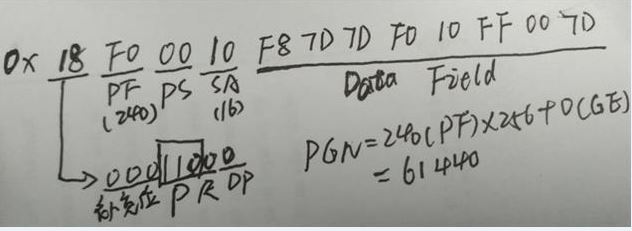 0x 18 F0 00 10 F8 7D 7D F0 10 FF 00 7D
PF PS SA Data Field
(240) (16)
PGN=240(PF)×256+0(GE)
=61440
00011000
补充位 P R DP